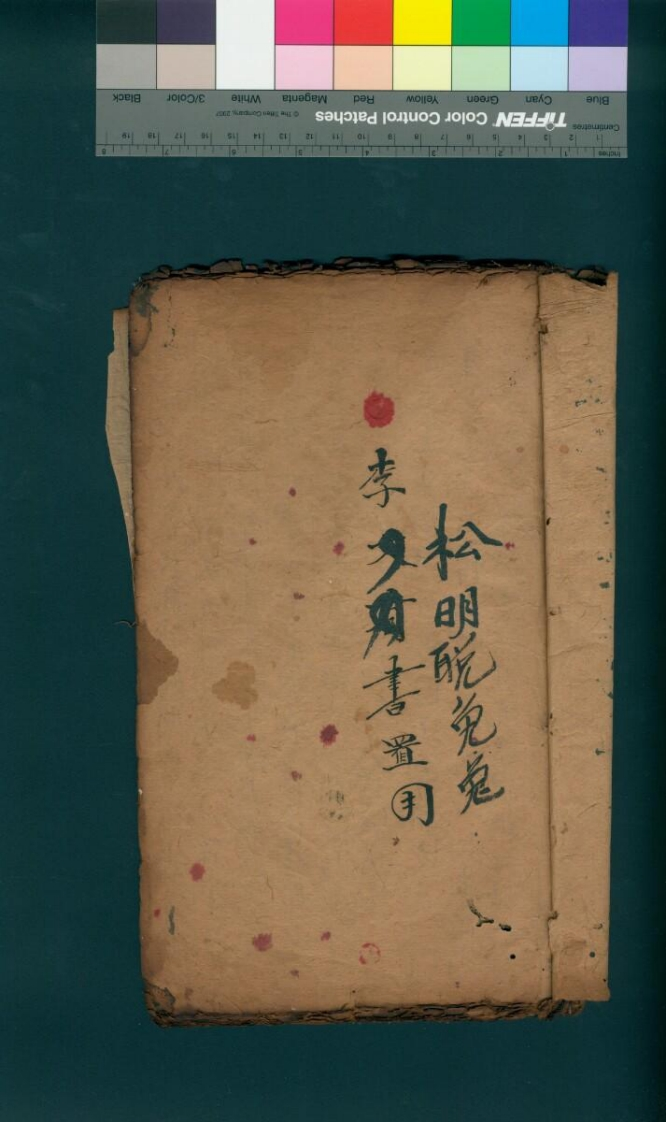 Inches 1 2 3 4 5 6 7 8
Centimetres 1 2 3 4 5 6 7 8 9 10 11 12 13 14 15 16 17 18 19
TIFFEN Color Control Patches © The Tiffen Company, 2007
Blue Cyan Green Yellow Red Magenta White 3/Color Black
松明脫免兔
李書置